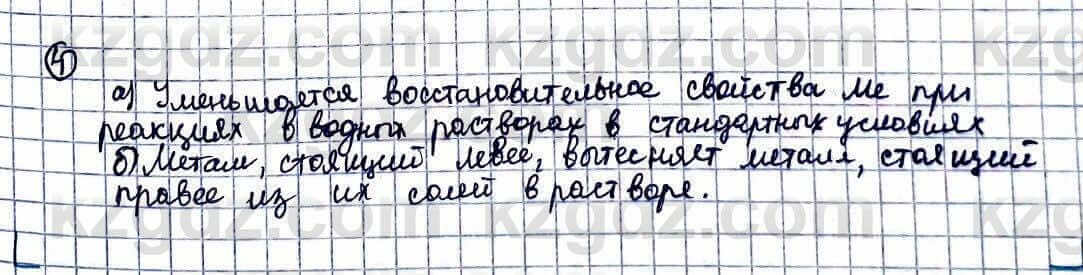 kzgdz.com kzgdz.com
④
а) Уменьшается восстановительное свойства Ме при
реакциях в водных растворах в стандартных условиях
б) Металл, стоящий левее, вытесняет металл, стоящий
правее из их солей в растворе.
kzgdz.com kzgdz.com